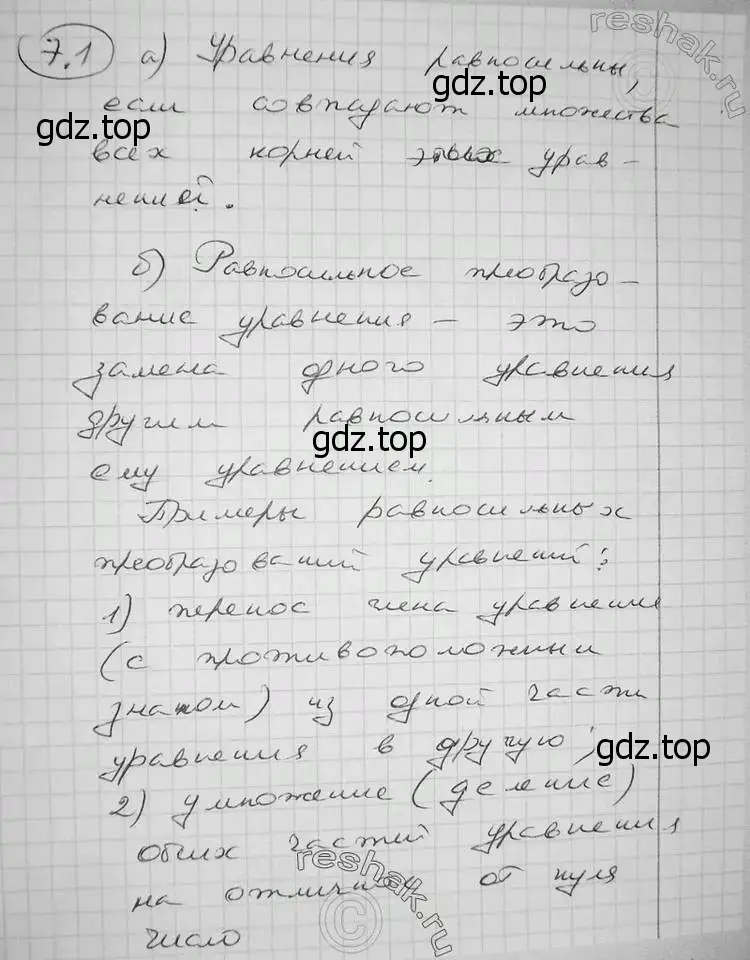 7.1 а) Уравнения равносильны,
если совпадают множества
всех корней этих урав-
нений.
б) Равносильное преобразо-
вание уравнения - это
замена одного уравнения
другим равносильным
ему уравнением.
Примеры равносильных
преобразований уравнений:
1) перенос члена уравнения
(с противоположным
знаком) из одной части
уравнения в другую;
2) умножение (деление)
обеих частей уравнения
на отличное от нуля
число
reshak.ru
gdz.top
gdz.top
gdz.top
gdz.top
gdz.top
reshak.ru